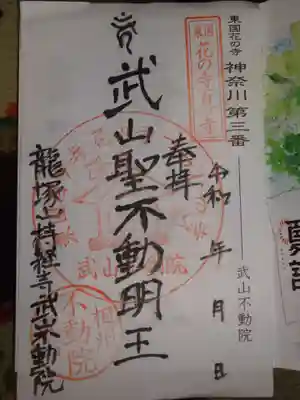 東国花の寺 神奈川 第三番
武山不動院
東国
花の寺百ヶ寺
奉拝
令和 年 月 日
武山聖不動明王
武山不動院
相州
不動院
龍塚山持経寺武山不動院